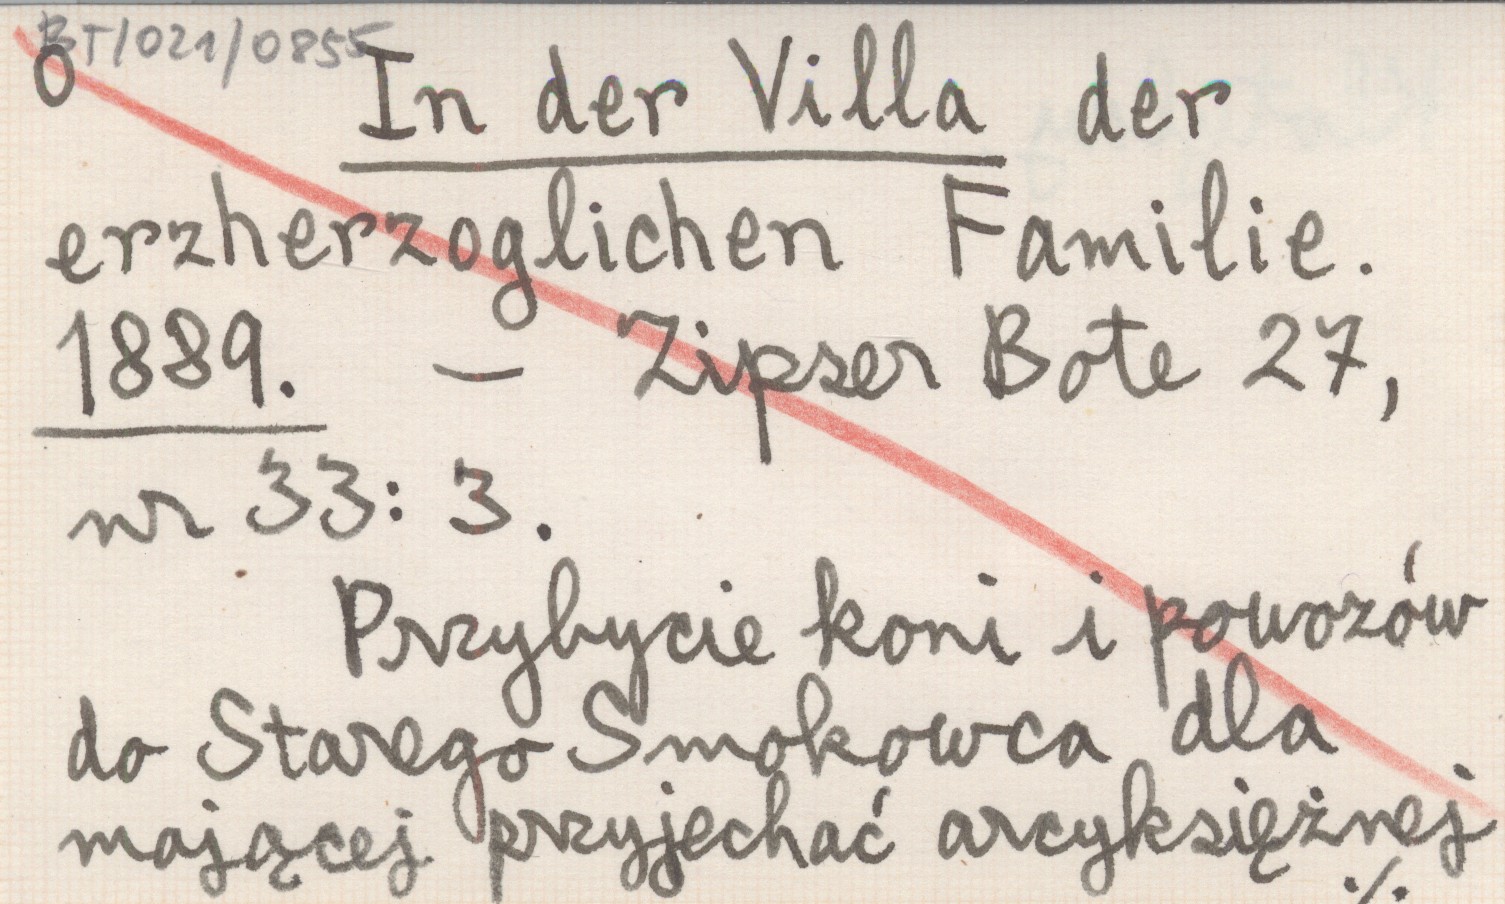 BT/021/0855
O In der Villa der
erzherzoglichen Familie.
1889. — Zipser Bote 27,
nr 33: 3.
Przybycie koni i powozów
do Starego Smokowca dla
mającej przyjechać arcyksiężnej
./.